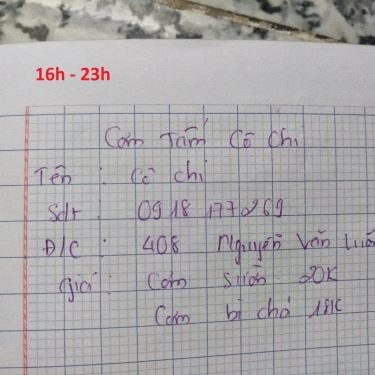 16h - 23h
Cơm Tấm Cô Chi
Tên : Cô chi
Sdt : 0918 177269
Đ/C : 408 Nguyễn Văn Luô
Giá : Cơm sườn 20K
Cơm bì chả 18K